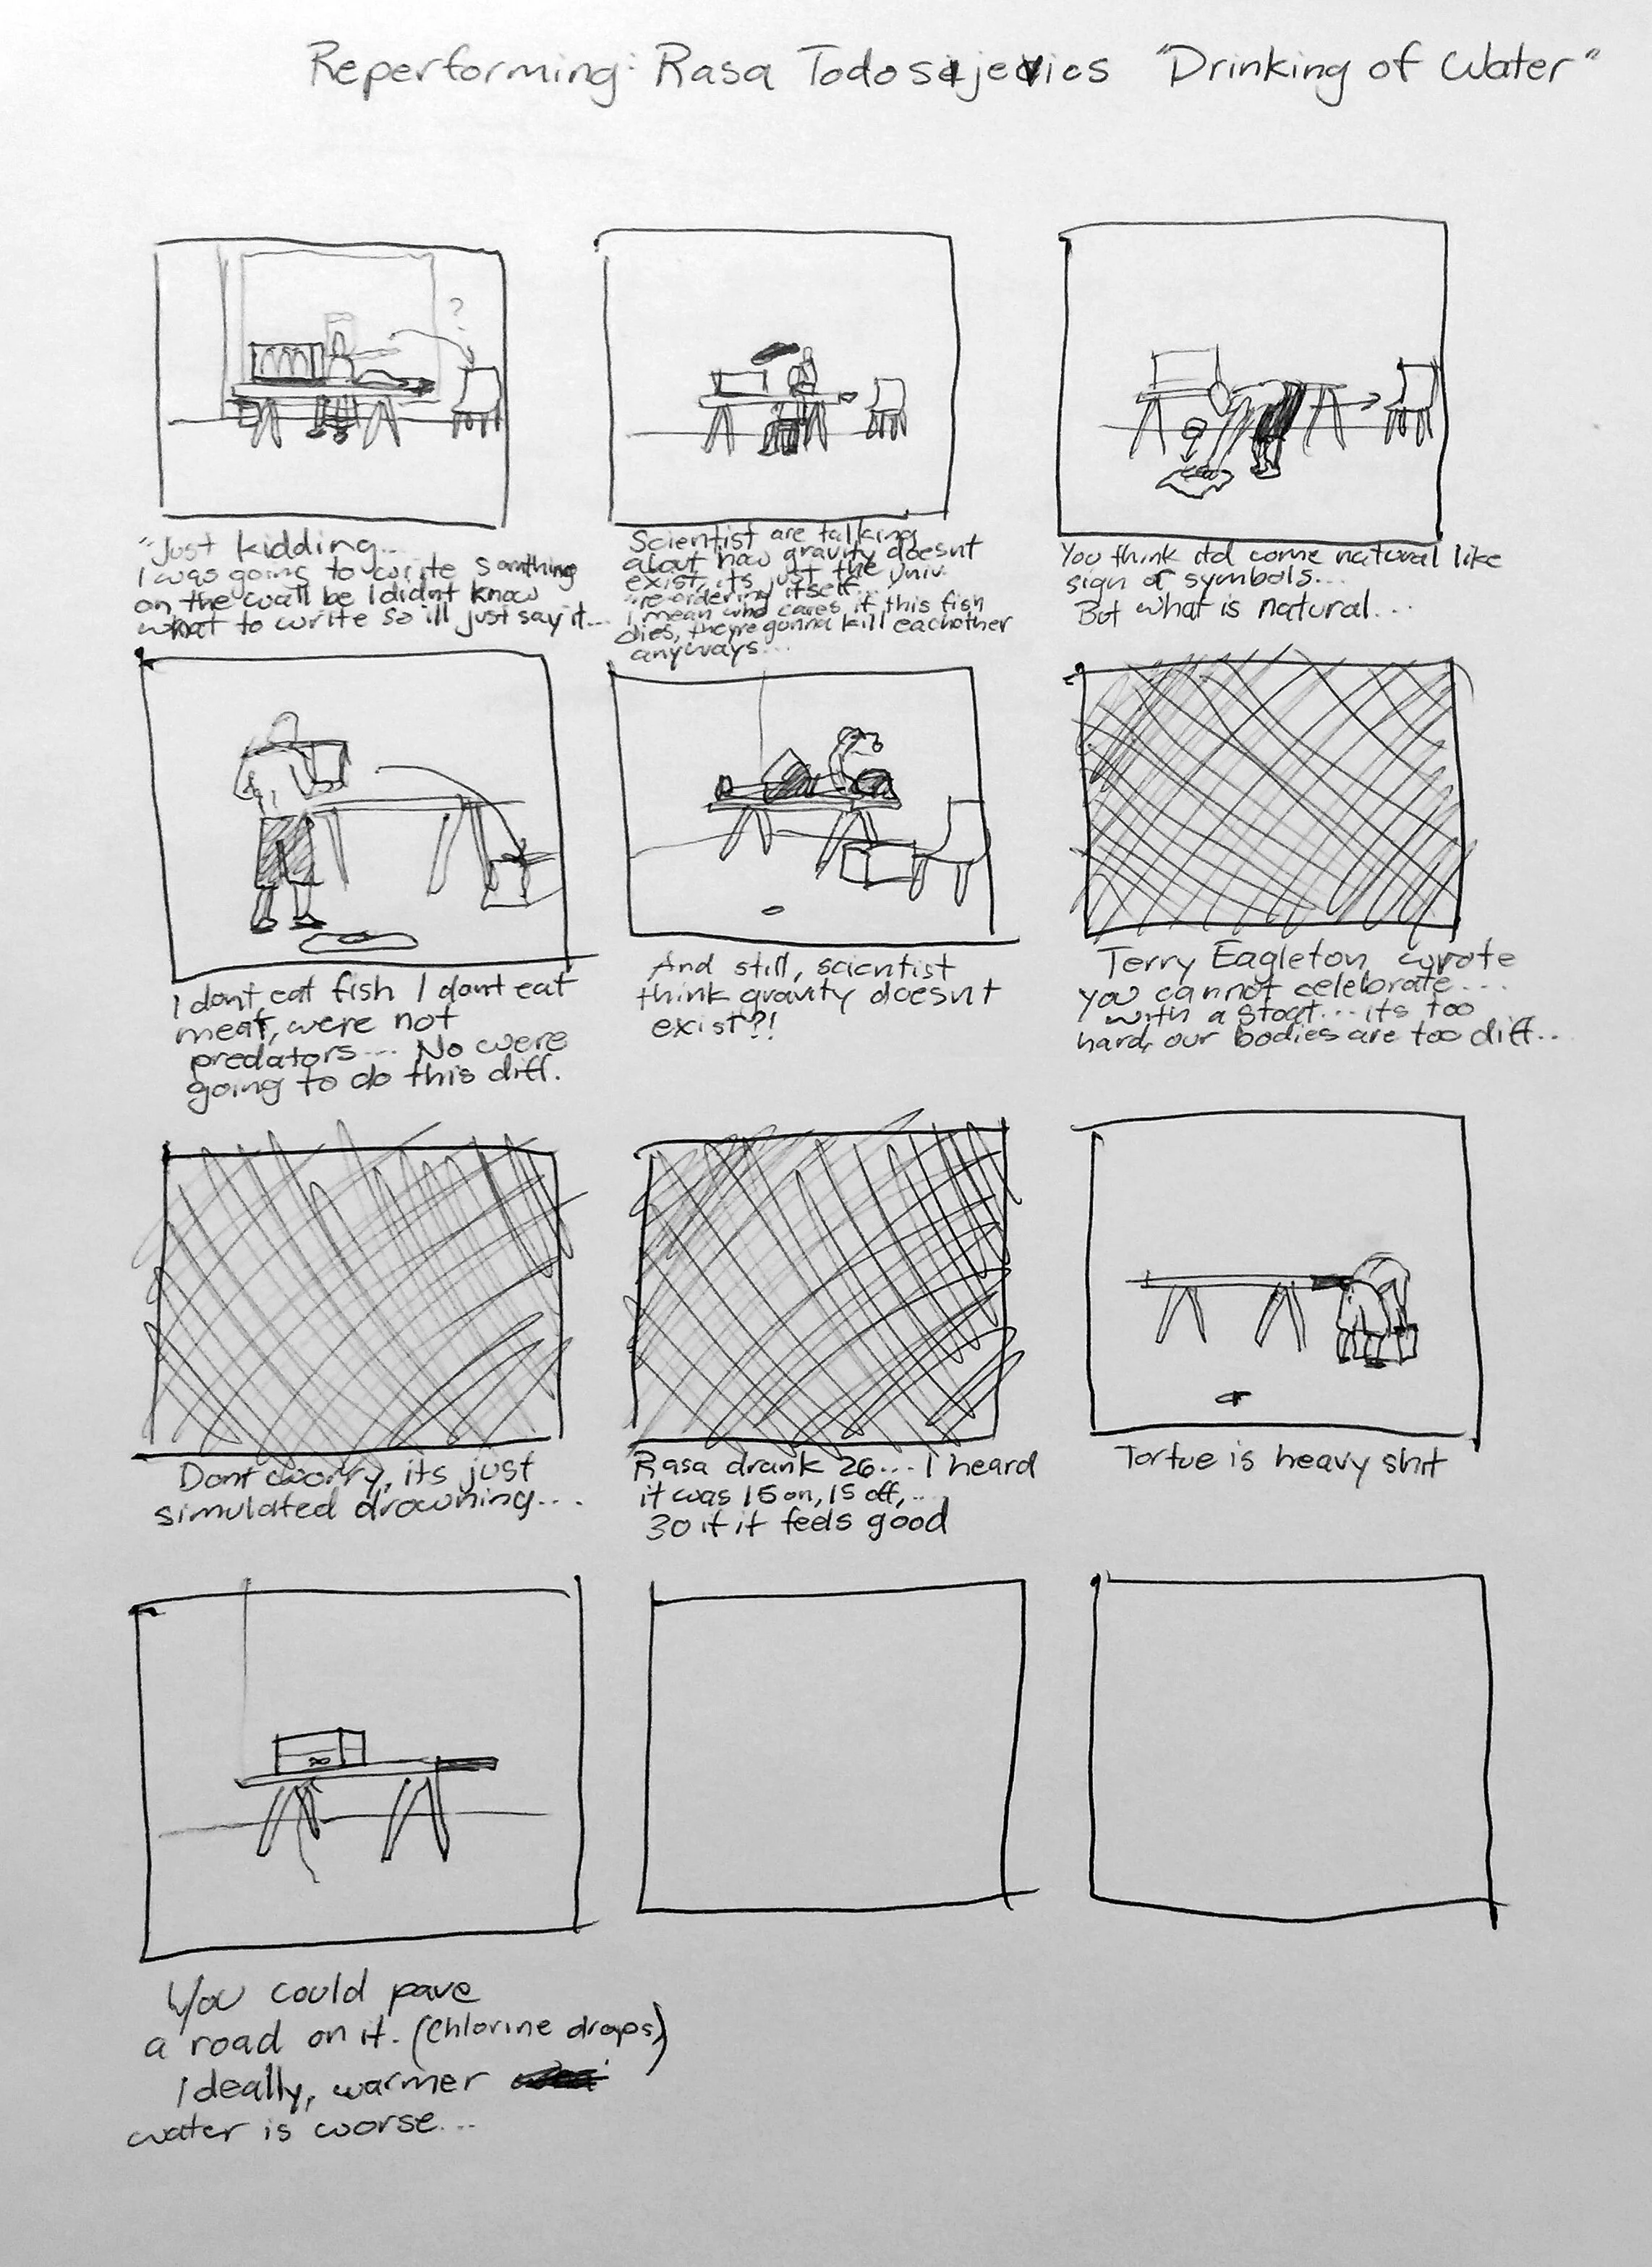 Reperforming: Rasa Todosijevics "Drinking of Water"
?
"Just kidding...
I was going to write somthing
on the wall bc I didnt know
what to write so ill just say it...
Scientist are talking
about how gravity doesnt
exist, its just the univ.
"re-ordering itself...
I mean who cares if this fish
dies, theyre gonna kill eachother
anyways...
You think itd come natural like
sign or symbols...
But what is natural...
I dont eat fish I dont eat
meat, were not
predators.... No were
going to do this diff.
And still, scientist
think gravity doesnt
exist?!
Terry Eagleton wrote
you cannot celebrate....
with a stoat... its too
hard, our bodies are too diff...
Dont worry, its just
simulated drowning...
Rasa drank 26... I heard
it was 15 on, 15 off,...
30 if it feels good
Tortue is heavy shit
You could pave
a road on it. (Chlorine drops)
Ideally, warmer
water is worse...